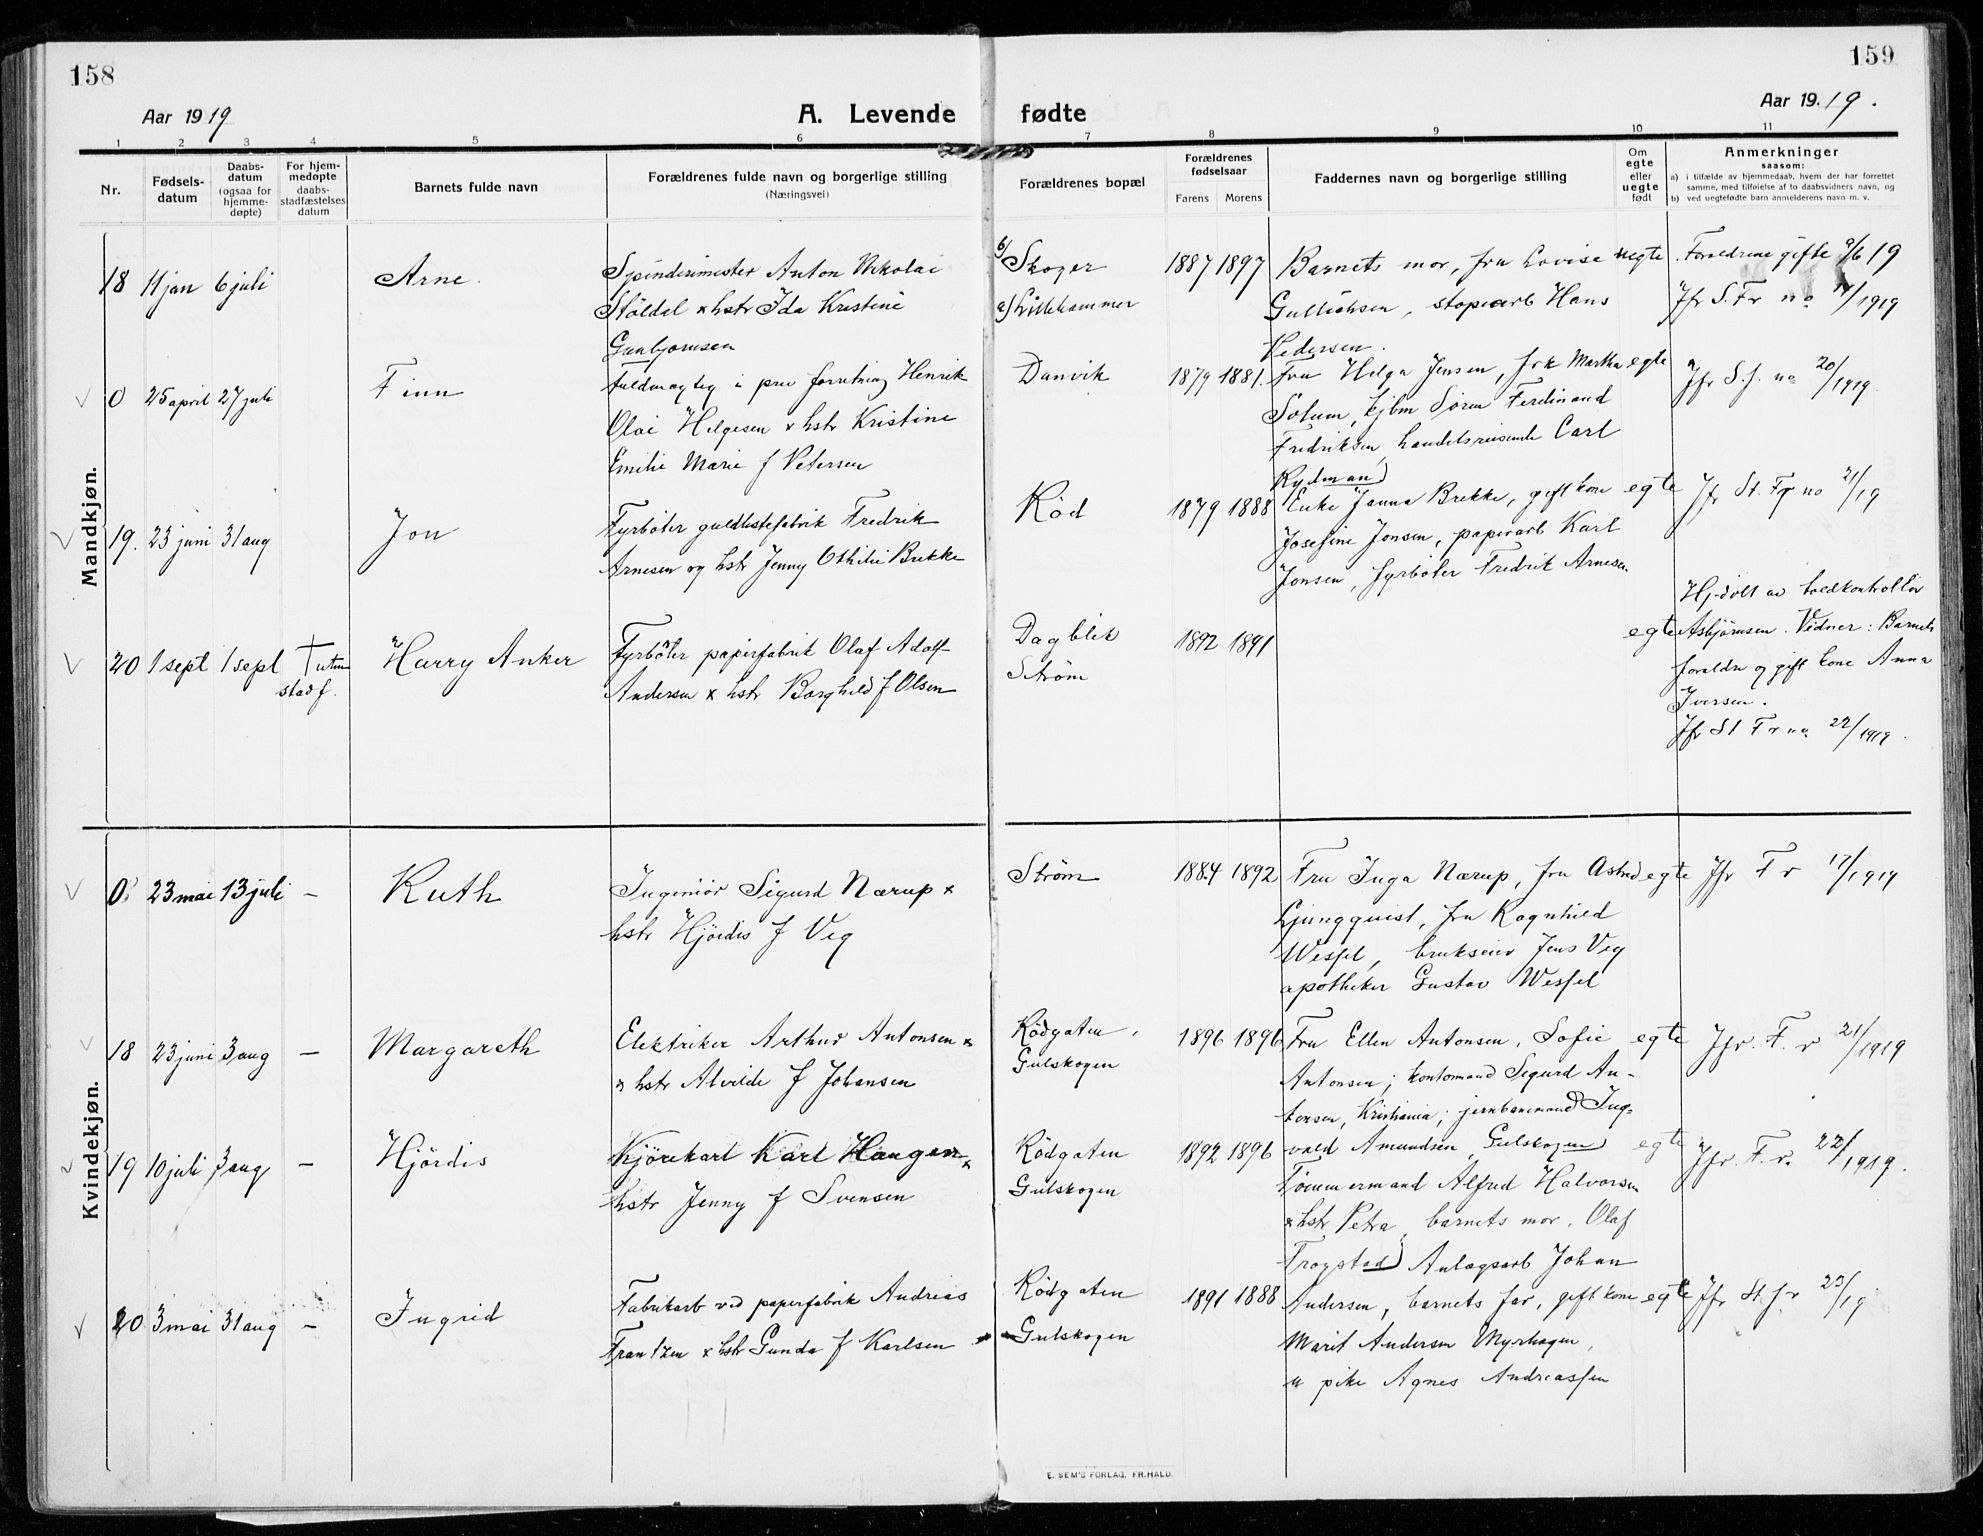 158
159
Aar 1919
A. Levende fødte
Aar 1919.
1 2 3 4 5 6 7 8 9 10 11
Nr.
Fødsels-
datum
Daabs-
datum
(ogsaa for
hjemme-
døpte)
For hjem-
medøpte
daabs-
stadfæstelses
datum
Barnets fulde navn
Forældrenes fulde navn og borgerlige stilling
(Næringsvei)
Forældrenes bopæl
Forældrenes
fødselsaar
Farens Morens
Faddernes navn og borgerlige stilling
Om
egte
eller
uegte
født
Anmerkninger
saasom:
a) i tilfælde av hjemmedaab, hvem der har forrettet
samme, med tilføielse af to daabsvidners navn, og
b) ved uegtefødte barn anmelderens navn m. v.
Mandkjøn.
18 11 jan 6 juli
Arne.
Spinderimester Anton Nikolai
Stöldal x hstr Ida Kristine
Gunbjornsen
b/ Skoger
a/ Lillehammer
1887 1897
Barnets mor, fru Lovise
Gullichsen, stoperarb Hans
Pedersen.
uegte
Foreldrene gifte 9/6 19
Jfr S. Fr no 14/1919
0 25 april 27 juli
Finn
Fuldmægtig i priv forretning Henrik
Olai Helgesen x hstr Kristine
Emilie Marie f Petersen
Danvik
1879 1881.
Fru Helga Jensen, frk Martha
Solum, kjbm Sören Ferdinand
Fredriksen, handelsreisende Carl
Rydman
egte
Jfr S. f. no 20/1919.
19. 23 juni 31 aug
Jon
Fyrböter guldlistefabrik Fredrik
Arnesen og hstr Jenny Othilie Brekke
Röd
1879 1888
Enke Janna Brekke, gift kone
Josefine Jonsen, papirarb Karl
Jonsen, fyrböter Fredrik Arnesen
egte
Jfr St. Fr no 21/19
20 1 sept 1 sept † uten
stadf.
Harry Anker
Fyrböter papirfabrik Olaf Adolf
Andersen x hstr Borghild f Olsen
Dagblik
Ström
1892 1891
egte
Hj-döbt av toldkontrollör
Asbjörnsen. Vidner: Barnets
foreldre og gift kone Anna
Iversen.
Jfr St Fr no 22/1919.
Kvindekjøn.
0 23 mai 13 juli –
Ruth
Ingeniör Sigurd Nærup x
hstr Hjördis f Veg
Ström
1884 1892
Fru Inga Nærup, fru Astrid
Ljungquist, fru Ragnhild
Wessel, brukseier Jens Veg
apotheker Gustav Wessel
egte
Jfr Fr 17/1919
18 23 juni 3 aug –
Margareth
Elektriker Arthur Antonsen x
x hstr Alvilde f Johansen
Rödgaten,
Gulskogen
1896 1896
Fru Ellen Antonsen, Sofie
Antonsen; kontormand Sigurd An-
tonsen, Kristiania; jernbanemand Ing-
vald Amundsen, Gulskogen
egte
Jfr. F. r 21/1919
19 10 juli 3 aug –
Hjördis
Kjörekart Karl Haugen x
hstr Jenny f Svensen
Rödgaten
Gulskogen
1892 1896
Tömmermand Alfred Halvorsen
x hstr Petra, barnets mor, Olaf
Trogstad
egte
Jfr. F. r. 22/1919.
20 3 mai 31 aug –
Ingrid
Fabrikarb ved papirfabrik Andreas
Frantzen x hstr Gunda f Karlsen
Rödgaten
Gulskogen
1891 1888
Anlægsarb Johan
Andersen, barnets far, gift kone
Marit Andersen Myrhagen,
u pike Agnes Andreassen
egte
Jfr St. f r 23/19
E. SEM'S FORLAG. FR.HALD.